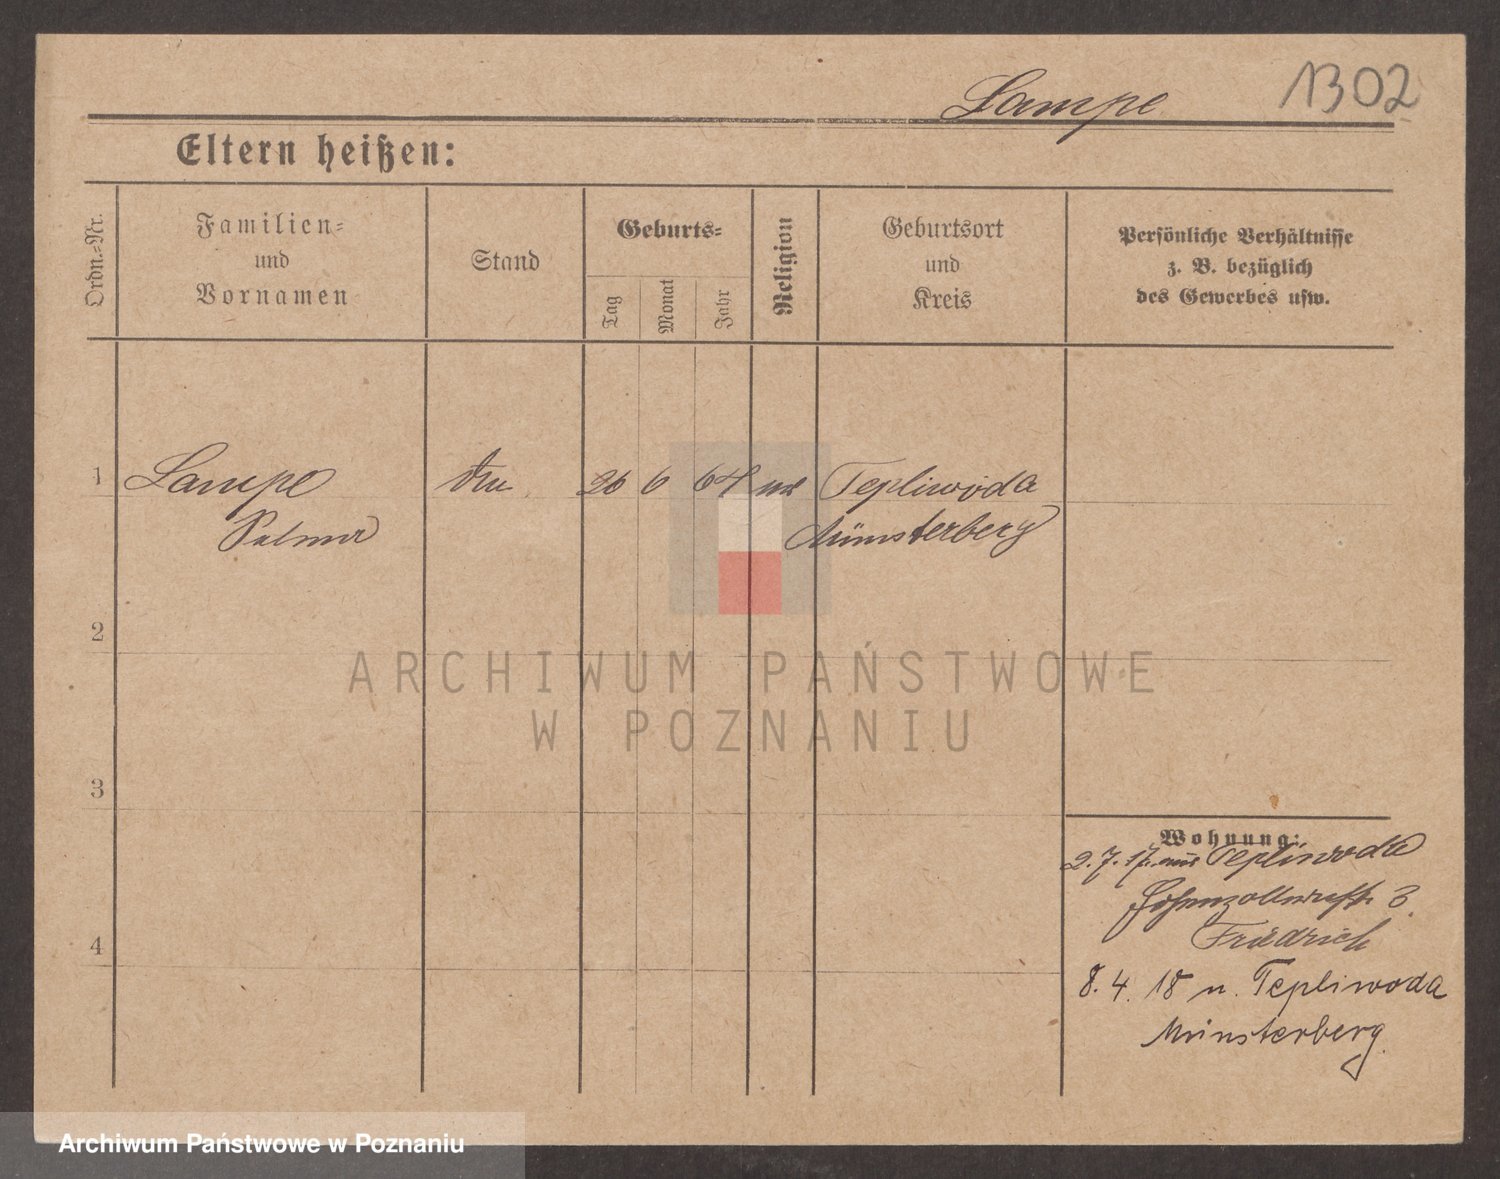 Lampe 1302
Eltern heißen:
Ordn.-Nr.
Familien-
und
Vornamen
Stand
Geburts-
Tag
Monat
Jahr
Religion
Geburtsort
und
Kreis
Persönliche Verhältnisse
z. B. bezüglich
des Gewerbes usw.
1 Lampe 26 6 64 Tepliwoda
Münsterberg
2
3
4
Wohnung:
2.7.17 aus Tepliwoda
Hohenzollernstr. 3
Friedrich
8.4.18 n. Tepliwoda
Münsterberg.
ARCHIWUM PAŃSTWOWE
W POZNANIU
Archiwum Państwowe w Poznaniu